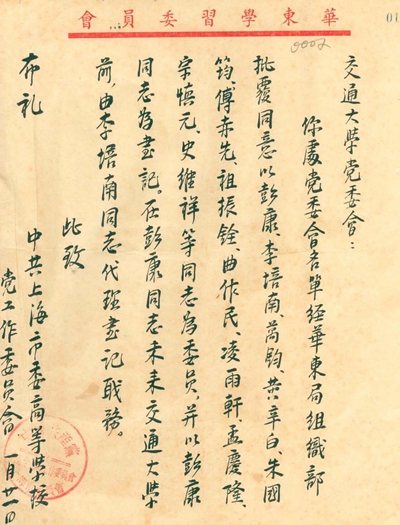 華東學習委員會
0002
01
交通大学党委會：
你處党委會名單經華東局組織部
批覆同意以彭康、李培南、萬鈞、黄辛白、朱國
筠、傅赤先、祖振銓、曲作民、凌雨軒、孟慶隆、
宗慎元、史维祥等同志為委員，并以彭康
同志為書記。在彭康同志未来交通大學
前，由李培南同志代理書記职務。
此致
布礼
中共上海市委高等學校
党工作委員會 一月廿一日